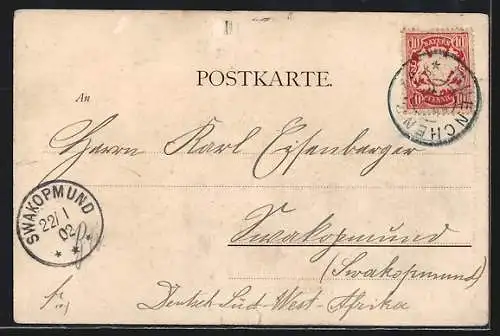 10 BAYERN 10
10 PFENNIG 10
MUENCHEN
POSTKARTE.
An
Herrn Karl Eisenberger
SWAKOPMUND
22/1
02
Swakopmund
(Swakopmund)
Deutsch Süd-West-Afrika